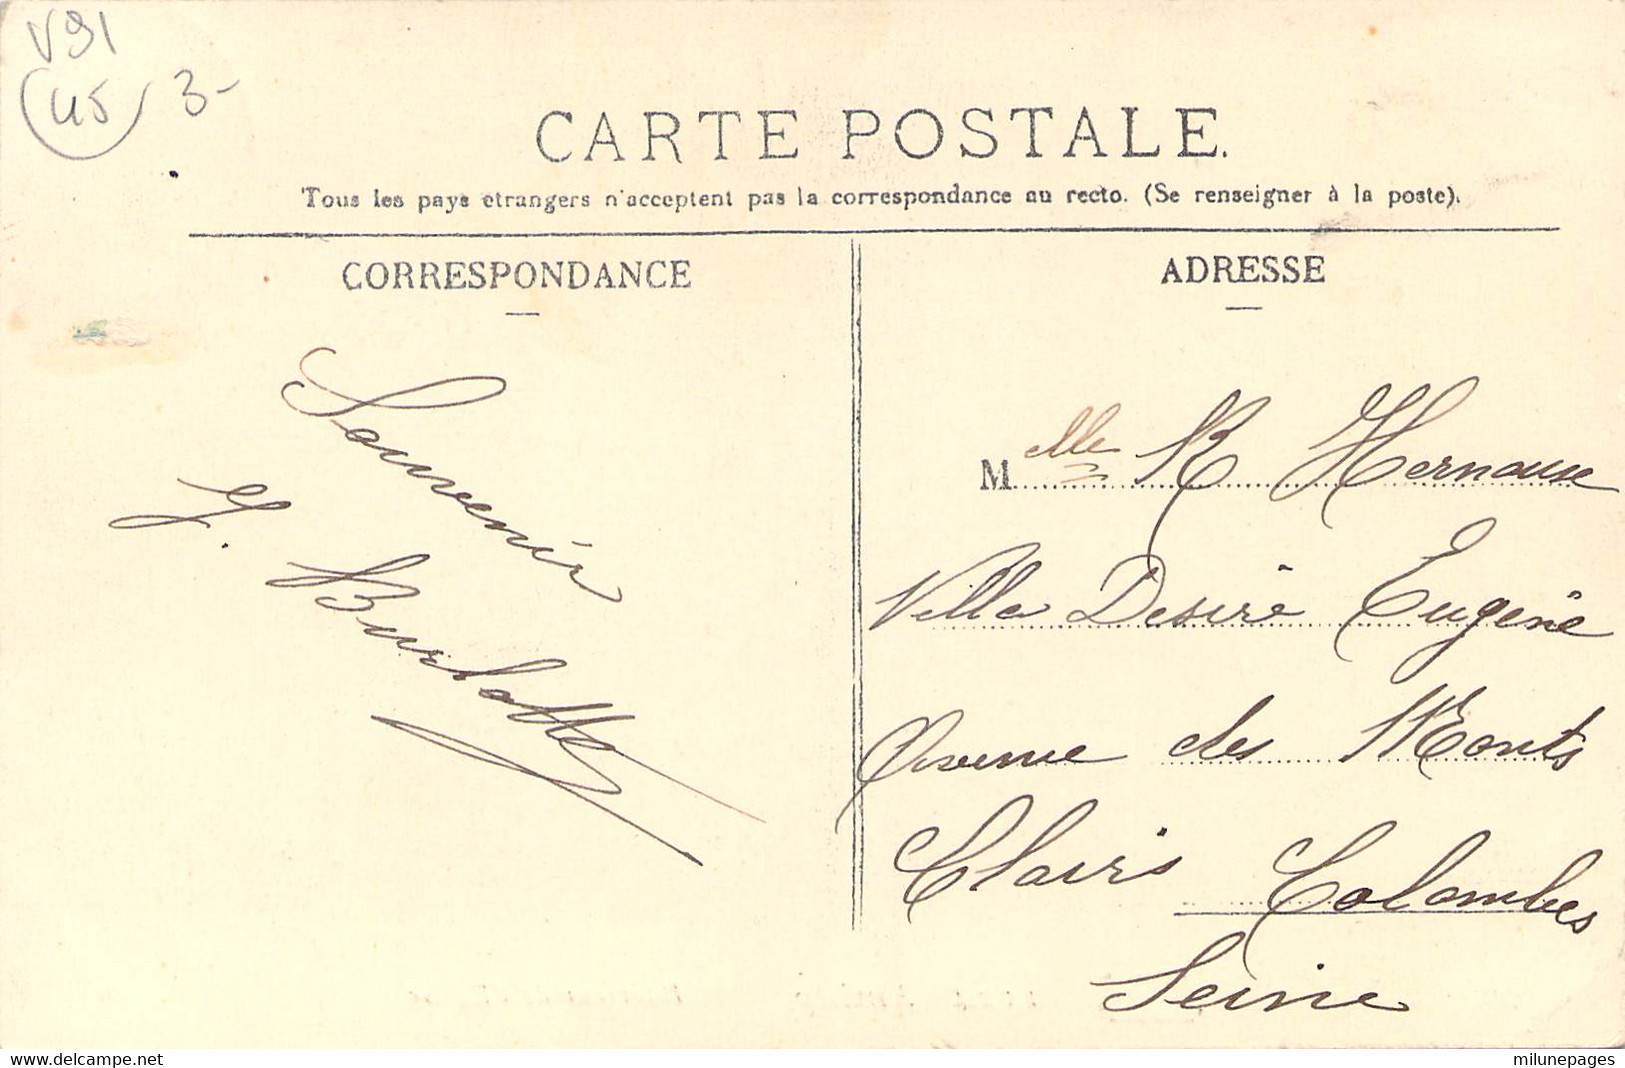 V91
45 3-
CARTE POSTALE.
Tous les pays etrangers n'acceptent pas la correspondance au recto. (Se renseigner à la poste).
CORRESPONDANCE
Souvenir
Y. Burlotte
ADRESSE
Melle R Hernouse
Villa Desiré Eugéne
Avenue des Monts
Clairs Colombes
Seine
www.delcampe.net
milunepages